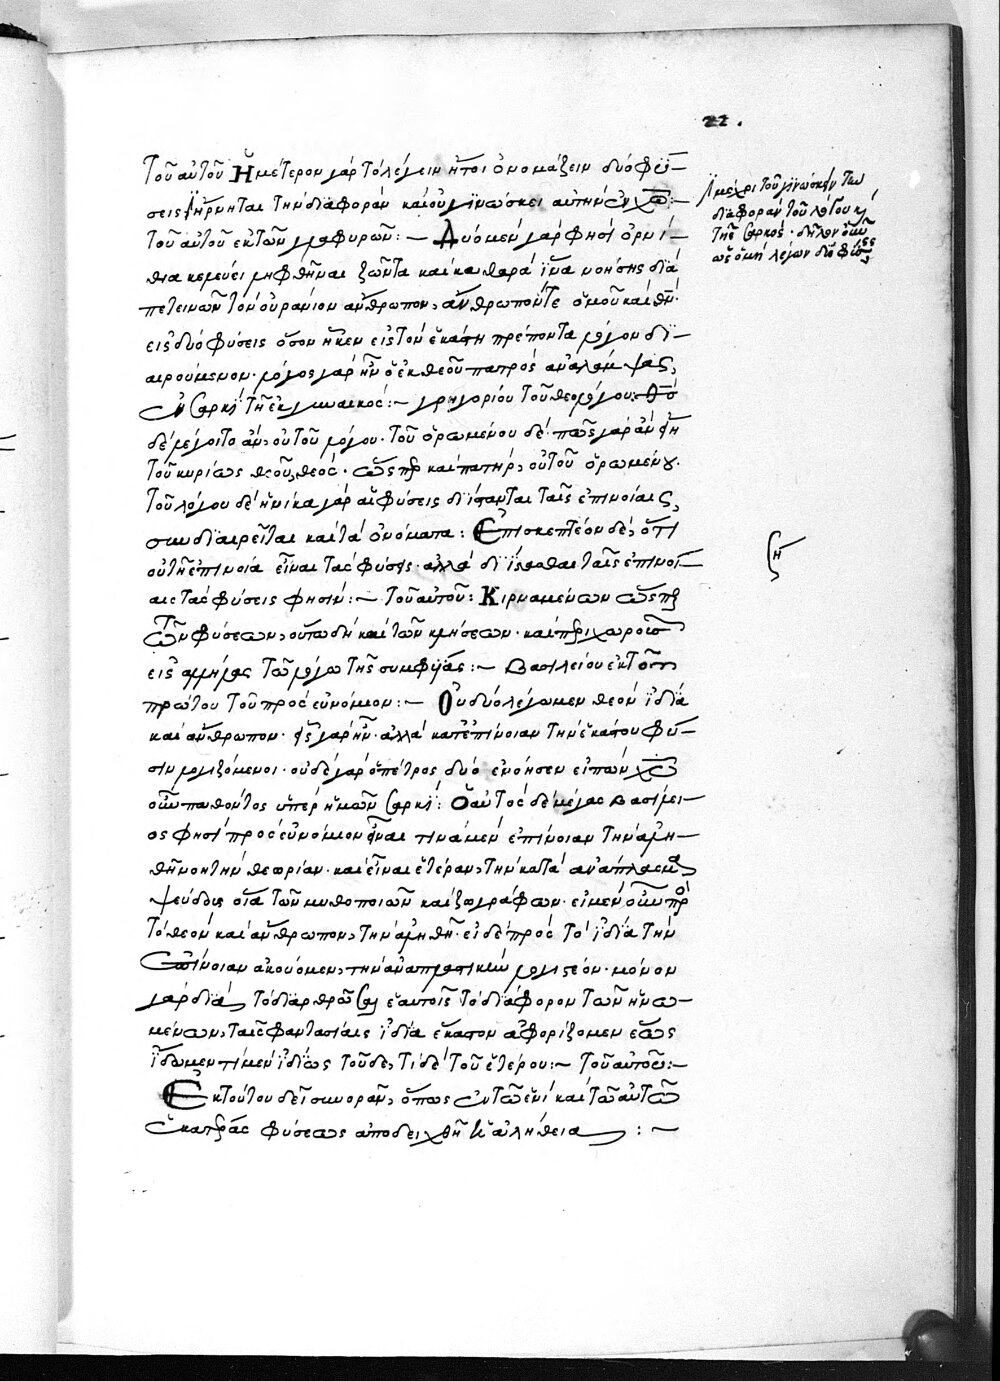 22.
Τοῦ αὐτοῦ Ἡμέτερον γὰρ τὸ λέγειν ἤτοι ὀνομάζειν δύο φύ-
σεις ἤρνηται τὴν διαφορὰν καὶ οὐ γινώσκει αὐτὴν ἐν χω:-
τοῦ αὐτοῦ ἐκ τῶν γλαφυρῶν:- Δύο μὲν γάρ φησι ὀρνί-
θια κελεύει ληφθῆναι ζῶντα καὶ καθαρὰ ἵνα νοήσης διὰ
πετεινῶν τὸν οὐράνιον ἄνθρωπον, ἄνθρωπόν τε ὁμοῦ καὶ θν.
εἰς δύο φύσεις ὅσον ἧκεν εἰς τὸν ἑκάστη πρέποντα λόγον δι-
αιρούμενον. λόγος γὰρ ἦν ὁ ἐκ θεοῦ πατρὸς ἀναλάμψας,
ἐν σαρκὶ τῆ ἐκ γυναικός:- γρηγορίου τοῦ θεολόγου: θσ
δὲ λέγοιτο ἂν, οὐ τοῦ λόγου. τοῦ ὁρωμένου δέ. πῶς γὰρ ἂν εἴη
τοῦ κυρίως θεοῦ, θεός. ὥσπερ καὶ πατήρ, οὐ τοῦ ὁρωμένου.
τοῦ λόγου δὲ ἡνίκα γὰρ αἱ φύσεις διίστανται ταῖς ἐπινοίαις,
συνδιαιρεῖται καὶ τὰ ὀνόματα: Ἐπισκεπτέον δὲ, ὅτι
οὐ τῆ ἐπινοία εἶναι τὰς φύσεις. ἀλλὰ διίστασθαι ταῖς ἐπινοί-
αις τὰς φύσεις φησίν:- τοῦ αὐτοῦ: Κιρναμένων ὥσπερ
τῶν φύσεων, οὕτω δὴ καὶ τῶν κλήσεων. καὶ περιχωρουσῶν
εἰς ἀλλήλας τῶ λόγω τῆς συμφυΐας:- Βασιλείου ἐκ τοῦ
πρώτου τοῦ πρὸς εὐνόμιον:- Οὐ δύο λέγωμεν θεὸν ἰδία
καὶ ἄνθρωπον. εἷς γὰρ ἦν. ἀλλὰ κατ' ἐπίνοιαν τὴν ἑκάστου φύ-
σιν λογιζόμενοι. οὐδὲ γὰρ ὁ πέτρος δύο ἐνόησεν εἰπών χῦ
οὖν παθόντος ὑπὲρ ἡμῶν σαρκί: Ὁ αὐτὸς δὲ μέγας Βασίλει-
ος φησὶ πρὸς εὐνόμιον εἶναι τινὰ μὲν ἐπίνοιαν τὴν ἀλη-
θῆ νοητὴν θεωρίαν. καὶ εἶναι ἑτέραν, τὴν κατὰ ἀνάπλασμα
ψεύδους οἷα τῶν μυθοποιῶν καὶ ζωγράφων. εἰ μὲν οὖν πρὸς
τὸ θεὸν καὶ ἄνθρωπον, τὴν ἀληθῆ. εἰ δὲ πρὸς τὸ ἰδία τὴν
ἐπίνοιαν ἀκούομεν, τὴν ἀναπλαστικὴν λογιστέον. μόνον
γὰρ διὰ τὸ διαρθρῶσαι ἑαυτοῖς τὸ διάφορον τῶν ἡνω-
μένων, ταῖς φαντασίαις ἰδία ἕκαστον ἀφορίζομεν ἕως
ἴδωμεν τί μὲν ἰδίως τοῦδε, τί δὲ τοῦ ἑτέρου:- τοῦ αὐτοῦ:-
Ἐκ τούτου δεῖ συνορᾶν, ὅπως ἐν τῶ ἑνὶ καὶ τῶ αὐτῶ
ἑκατέρας φύσεως ἀποδειχθῆ ἡ ἀλήθεια:-
μέχρι τοῦ γινώσκειν τὴν
διαφορὰν τοῦ λόγου κὶ
τῆς σαρκός. δῆλον οὖν
ὡς ὁ μὴ λέγων δύο φύσεις